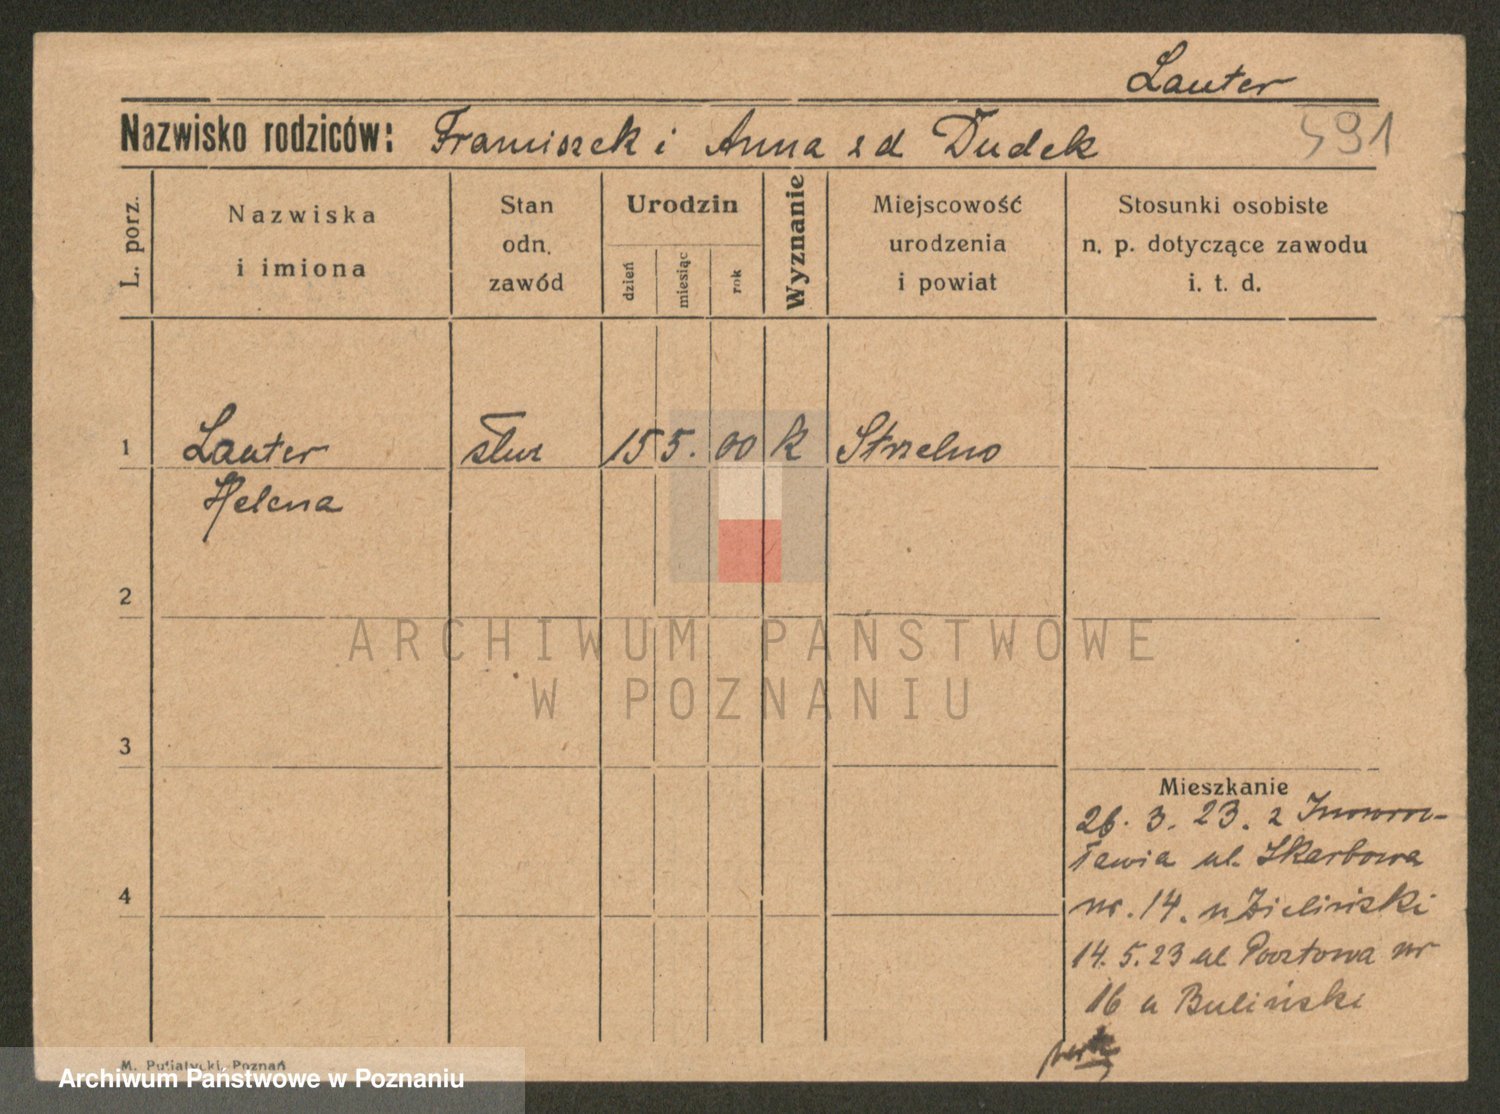 Lauter
Nazwisko rodziców: Franciszek i Anna z d Dudek
591
L. porz.
Nazwiska
i imiona
Stan
odn.
zawód
Urodzin
dzień
miesiąc
rok
Wyznanie
Miejscowość
urodzenia
i powiat
Stosunki osobiste
n. p. dotyczące zawodu
i. t. d.
1
Lauter
służ
15 5. 00 k Strzelno
Helena
2
ARCHIWUM PAŃSTWOWE
W POZNANIU
3
Mieszkanie
26. 3. 23. z Inowroc-
ławia ul. Skarbowa
4
nr. 14. u Zieliński
14. 5. 23 ul Pocztowa nr
16 u Buliński
M. Putiatycki, Poznań
Archiwum Państwowe w Poznaniu